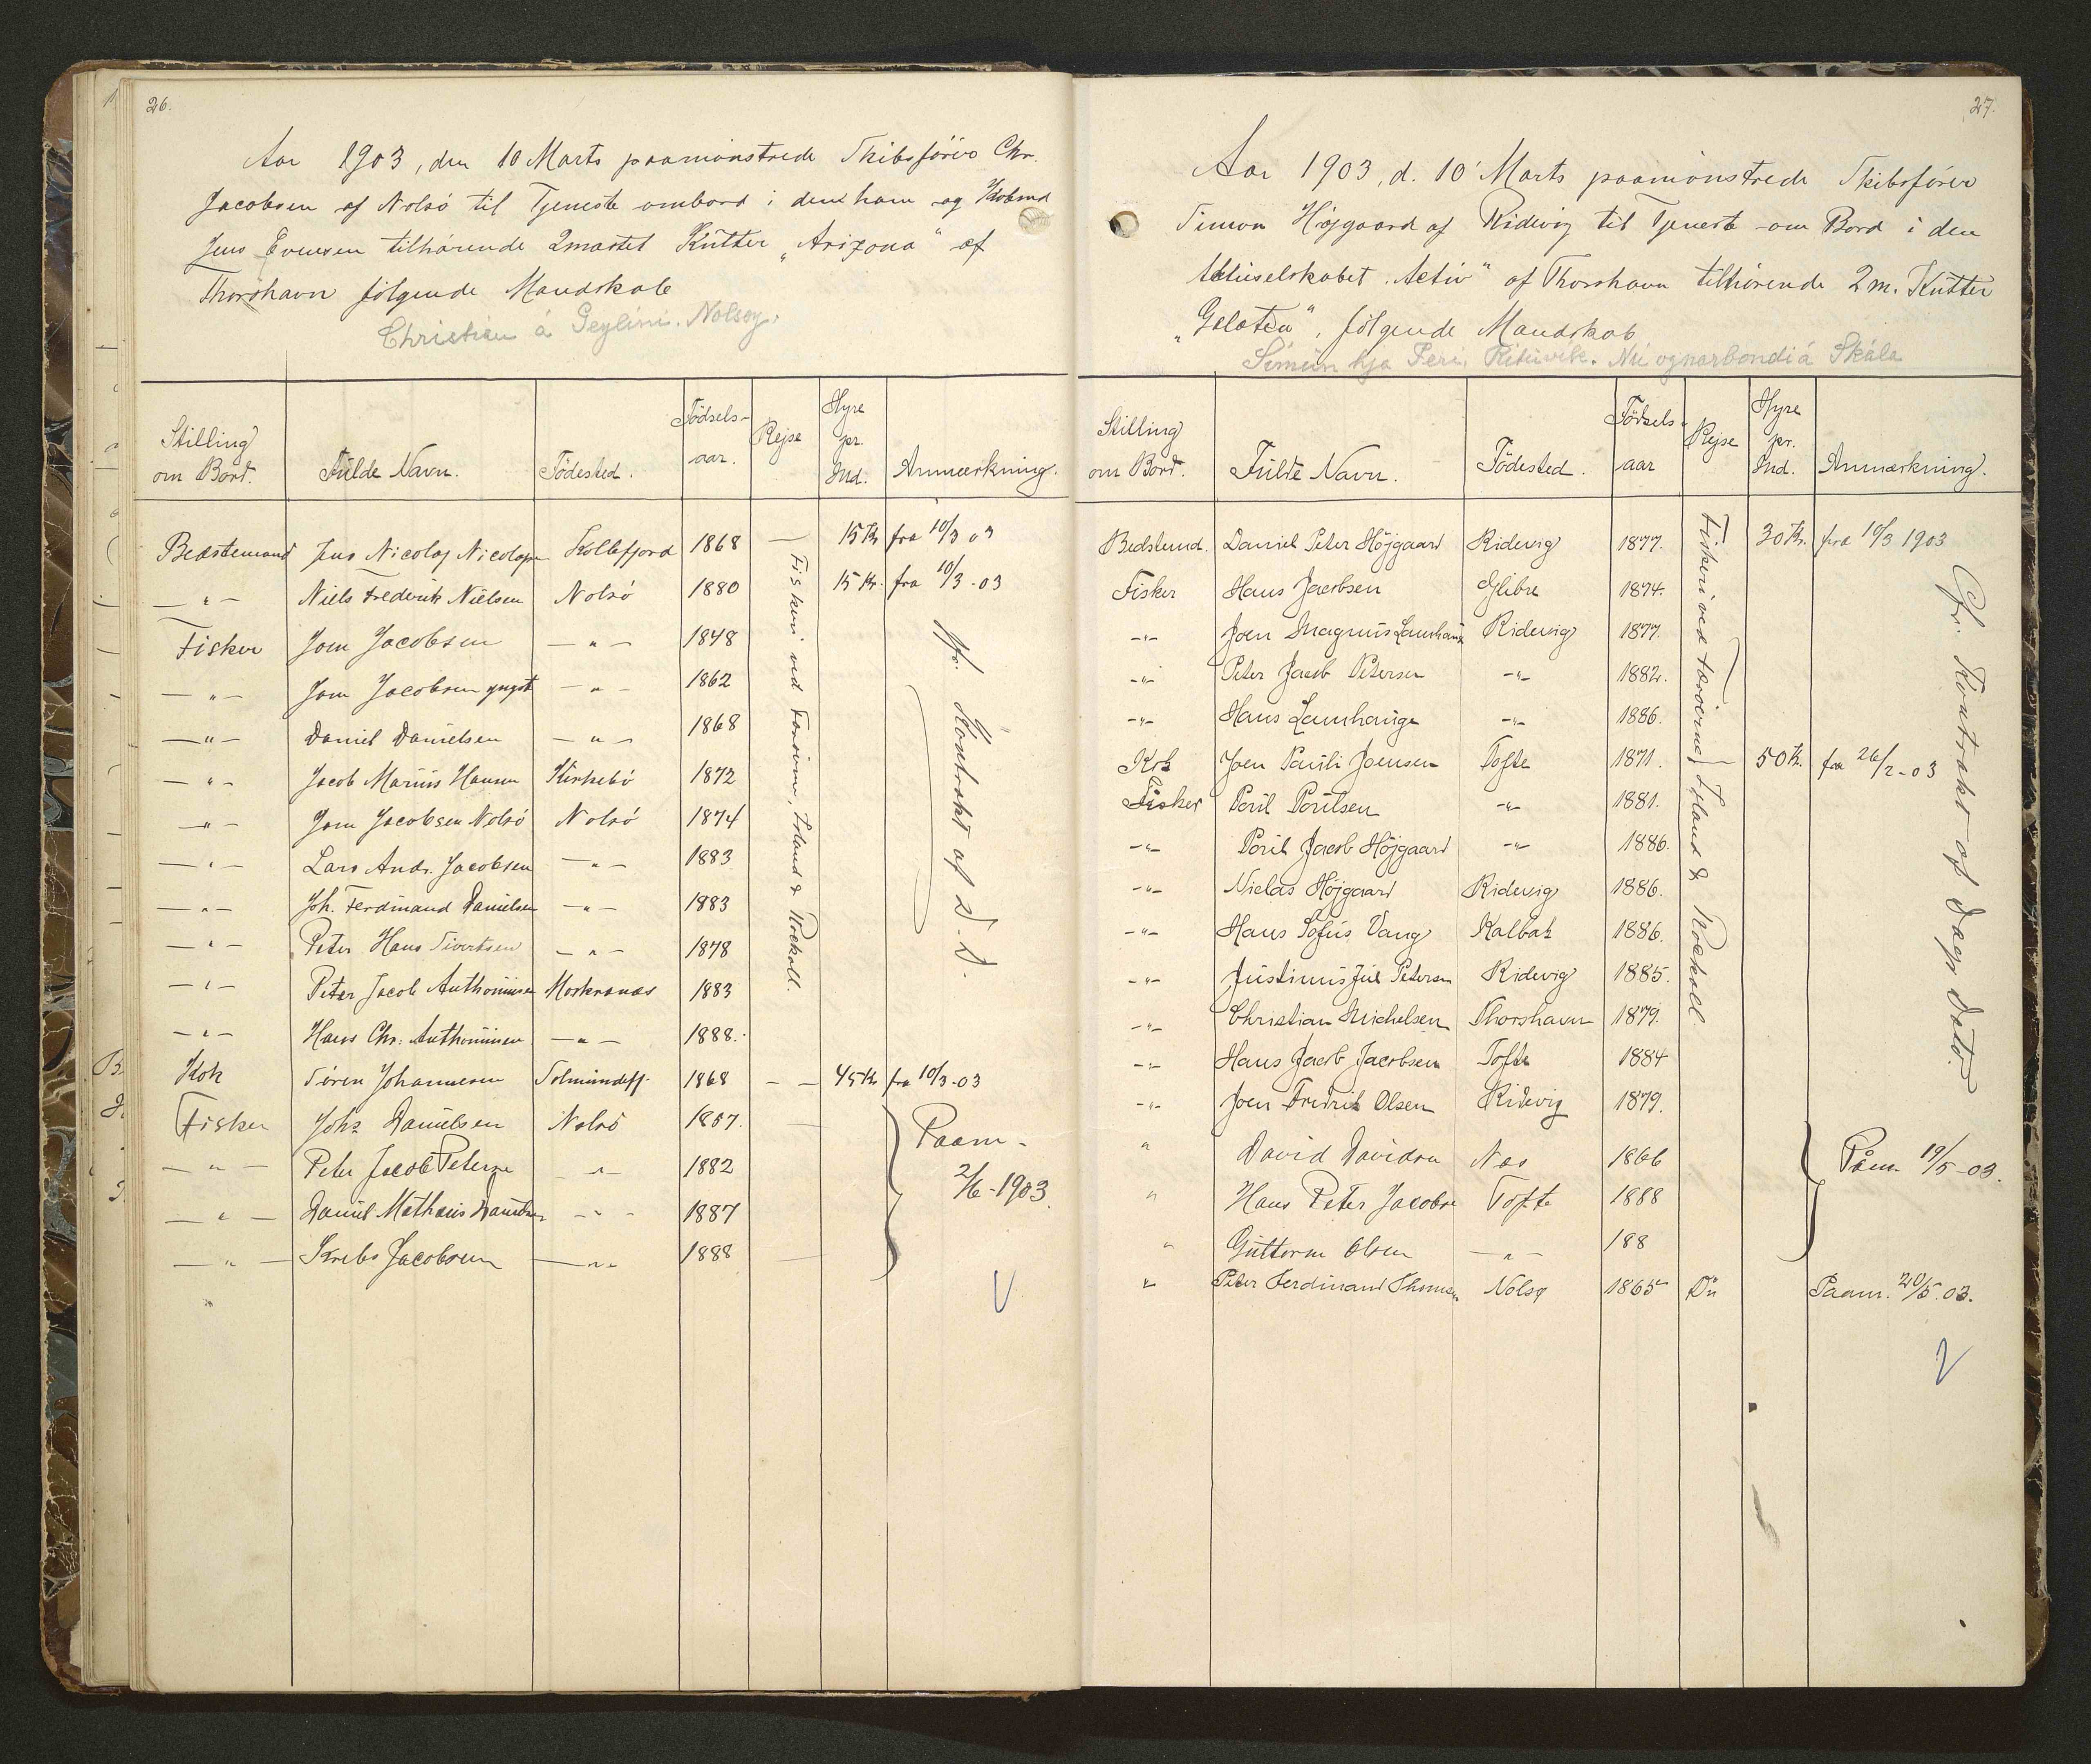 26.
Aar 1903, den 10 Marts paamönstrede Skibsförer Chr.
Jacobsen af Nolsö til Tjeneste ombord i den ham og Kobmd
Jens Evensen tilhörende 2mastet Kutter „Arizona" af
Thorshavn følgende Mandskab
Christian á Geylini. Nolsoy.
Stilling om Bord. Fulde Navn. Födested. Födsels-aar. Rejse Hyre pr. Md. Anmærkning.
Bedstemand Jens Nicolaj Nicolajsen Kollefjord 1868 — 15 Kr fra 10/3 03
— " — Niels Frederik Nielsen Nolsö 1880 15 Kr. fra 10/3 - 03
Fisker Joen Jacobsen — " — 1848
— " — Joen Jacobsen yngst — " — 1862
— " — Daniel Danielsen — " — 1868
— " — Jacob Marius Hansen Kirkebö 1872
— " — Joen Jacobsen Nolsö Nolsö 1874
— " — Lars Andr. Jacobsen — " — 1883
— " — Joh. Ferdinand Danielsen — " — 1883
— " — Peter Hans Sivertsen — " — 1878
— " — Peter Jacob Anthoniusen Morkranæs 1883
— " — Hans Chr. Anthoniusen — " — 1888.
Kok Sören Johannesen Solmundefj. 1868 — — 45 Kr fra 10/3-03
Fisker Johs Danielsen Nolsö 1857.
— " — Peter Jacob Petersen — " — 1882
— " — Daniel Mathæus Danielsen — " — 1887
— " — Krebs Jacobsen — " — 1888
Fiskeri ved Færöerne, Island & Rockall.
Cfr. Kontrakt af D. D.
Paam-
2/6-1903.
27.
Aar 1903, d. 10' Marts paamönstrede Skibsförer
Simon Höjgaard af Ridevig til Tjeneste om Bord i den
Aktieselskabet „Activ" af Thorshavn tilhörende 2 m. Kutter
„Galatea", følgende Mandskab
Símun hja Peri, Rituvík. Nú ognarbondi á Skála
Stilling om Bord. Fulde Navn. Födested. Födsels-aar Rejse Hyre pr. Md. Anmærkning.
Bedstemd. Daniel Peter Höjgaard Ridevig 1877. 30 Kr. fra 10/3 1903
Fisker Hans Jacobsen Glibre 1874.
— " — Joen Magnus Lamhauge Ridevig 1877.
— " — Peter Jacob Petersen — " — 1882.
— " — Hans Lamhauge — " — 1886.
Kok Joen Pauli Joensen Tofte 1871. 50 Kr. fra 26/2-03
Fisker Poul Poulsen — " — 1881.
— " — Poul Jacob Höjgaard — " — 1886.
— " — Niclas Höjgaard Ridevig 1886.
— " — Hans Sofus Vang Kalbak 1886.
— " — Justinus Jul Petersen Ridevig 1885.
— " — Christian Michelsen Thorshavn 1879.
— " — Hans Jacob Jacobsen Tofte 1884
— " — Joen Fredrik Olsen Ridevig 1879.
" David Davidsen Næs 1866
" Hans Peter Jacobsen Tofte 1888
" Guttorm Olsen — " — 188
" Peter Ferdinand Thomsen Nolsø 1865 Do Paam. 20/5.03.
Fiskeri ved Færöerne, Island & Rockall.
Cfr. Kontrakt af Dags Dato.
Paam. 19/5-03.